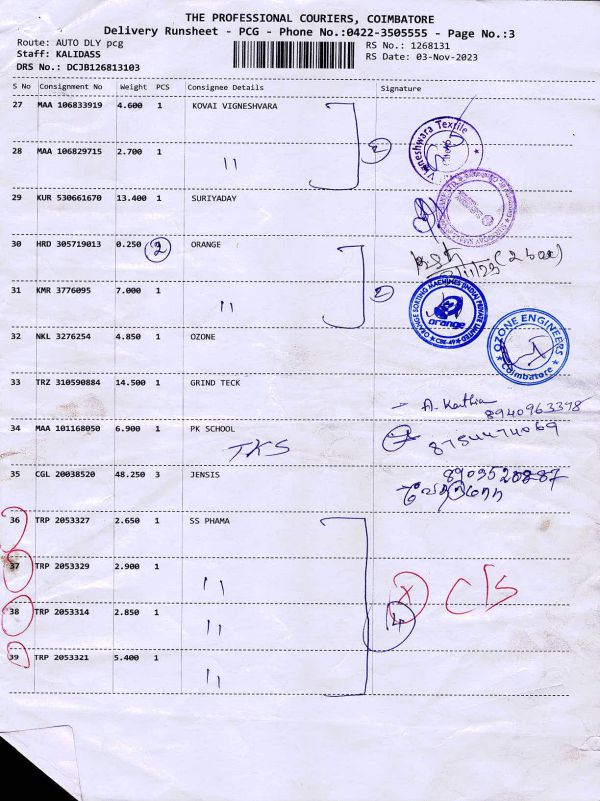 THE PROFESSIONAL COURIERS, COIMBATORE
Delivery Runsheet - PCG - Phone No.:0422-3505555 - Page No.:3
Route: AUTO DLY pcg
RS No.: 1268131
Staff: KALIDASS
RS Date: 03-Nov-2023
DRS No.: DCJB126813103
S No Consignment No Weight PCS Consignee Details Signature
27 MAA 106833919 4.600 1 KOVAI VIGNESHVARA
Vigneshwara Textile
28 MAA 106829715 2.700 1 " 2
29 KUR 530661670 13.400 1 SURIYADAY
30 HRD 305719013 0.250 2 ORANGE
(2 box)
31 KMR 3776095 7.000 1 " 2
ORANGE SORTING MACHINES (INDIA) PRIVATE LIMITED
orange
CBE-49
32 NKL 3276254 4.850 1 OZONE
OZONE ENGINEERS
Coimbatore
33 TRZ 310590884 14.500 1 GRIND TECK
A. Karthi
8940963398
34 MAA 101168050 6.900 1 PK SCHOOL
8754474069
TKS
35 CGL 20038520 48.250 3 JENSIS
8903520887
36 TRP 2053327 2.650 1 SS PHAMA
37 TRP 2053329 2.900 1 "
C/S
38 TRP 2053314 2.850 1 "
4
39 TRP 2053321 5.400 1 "